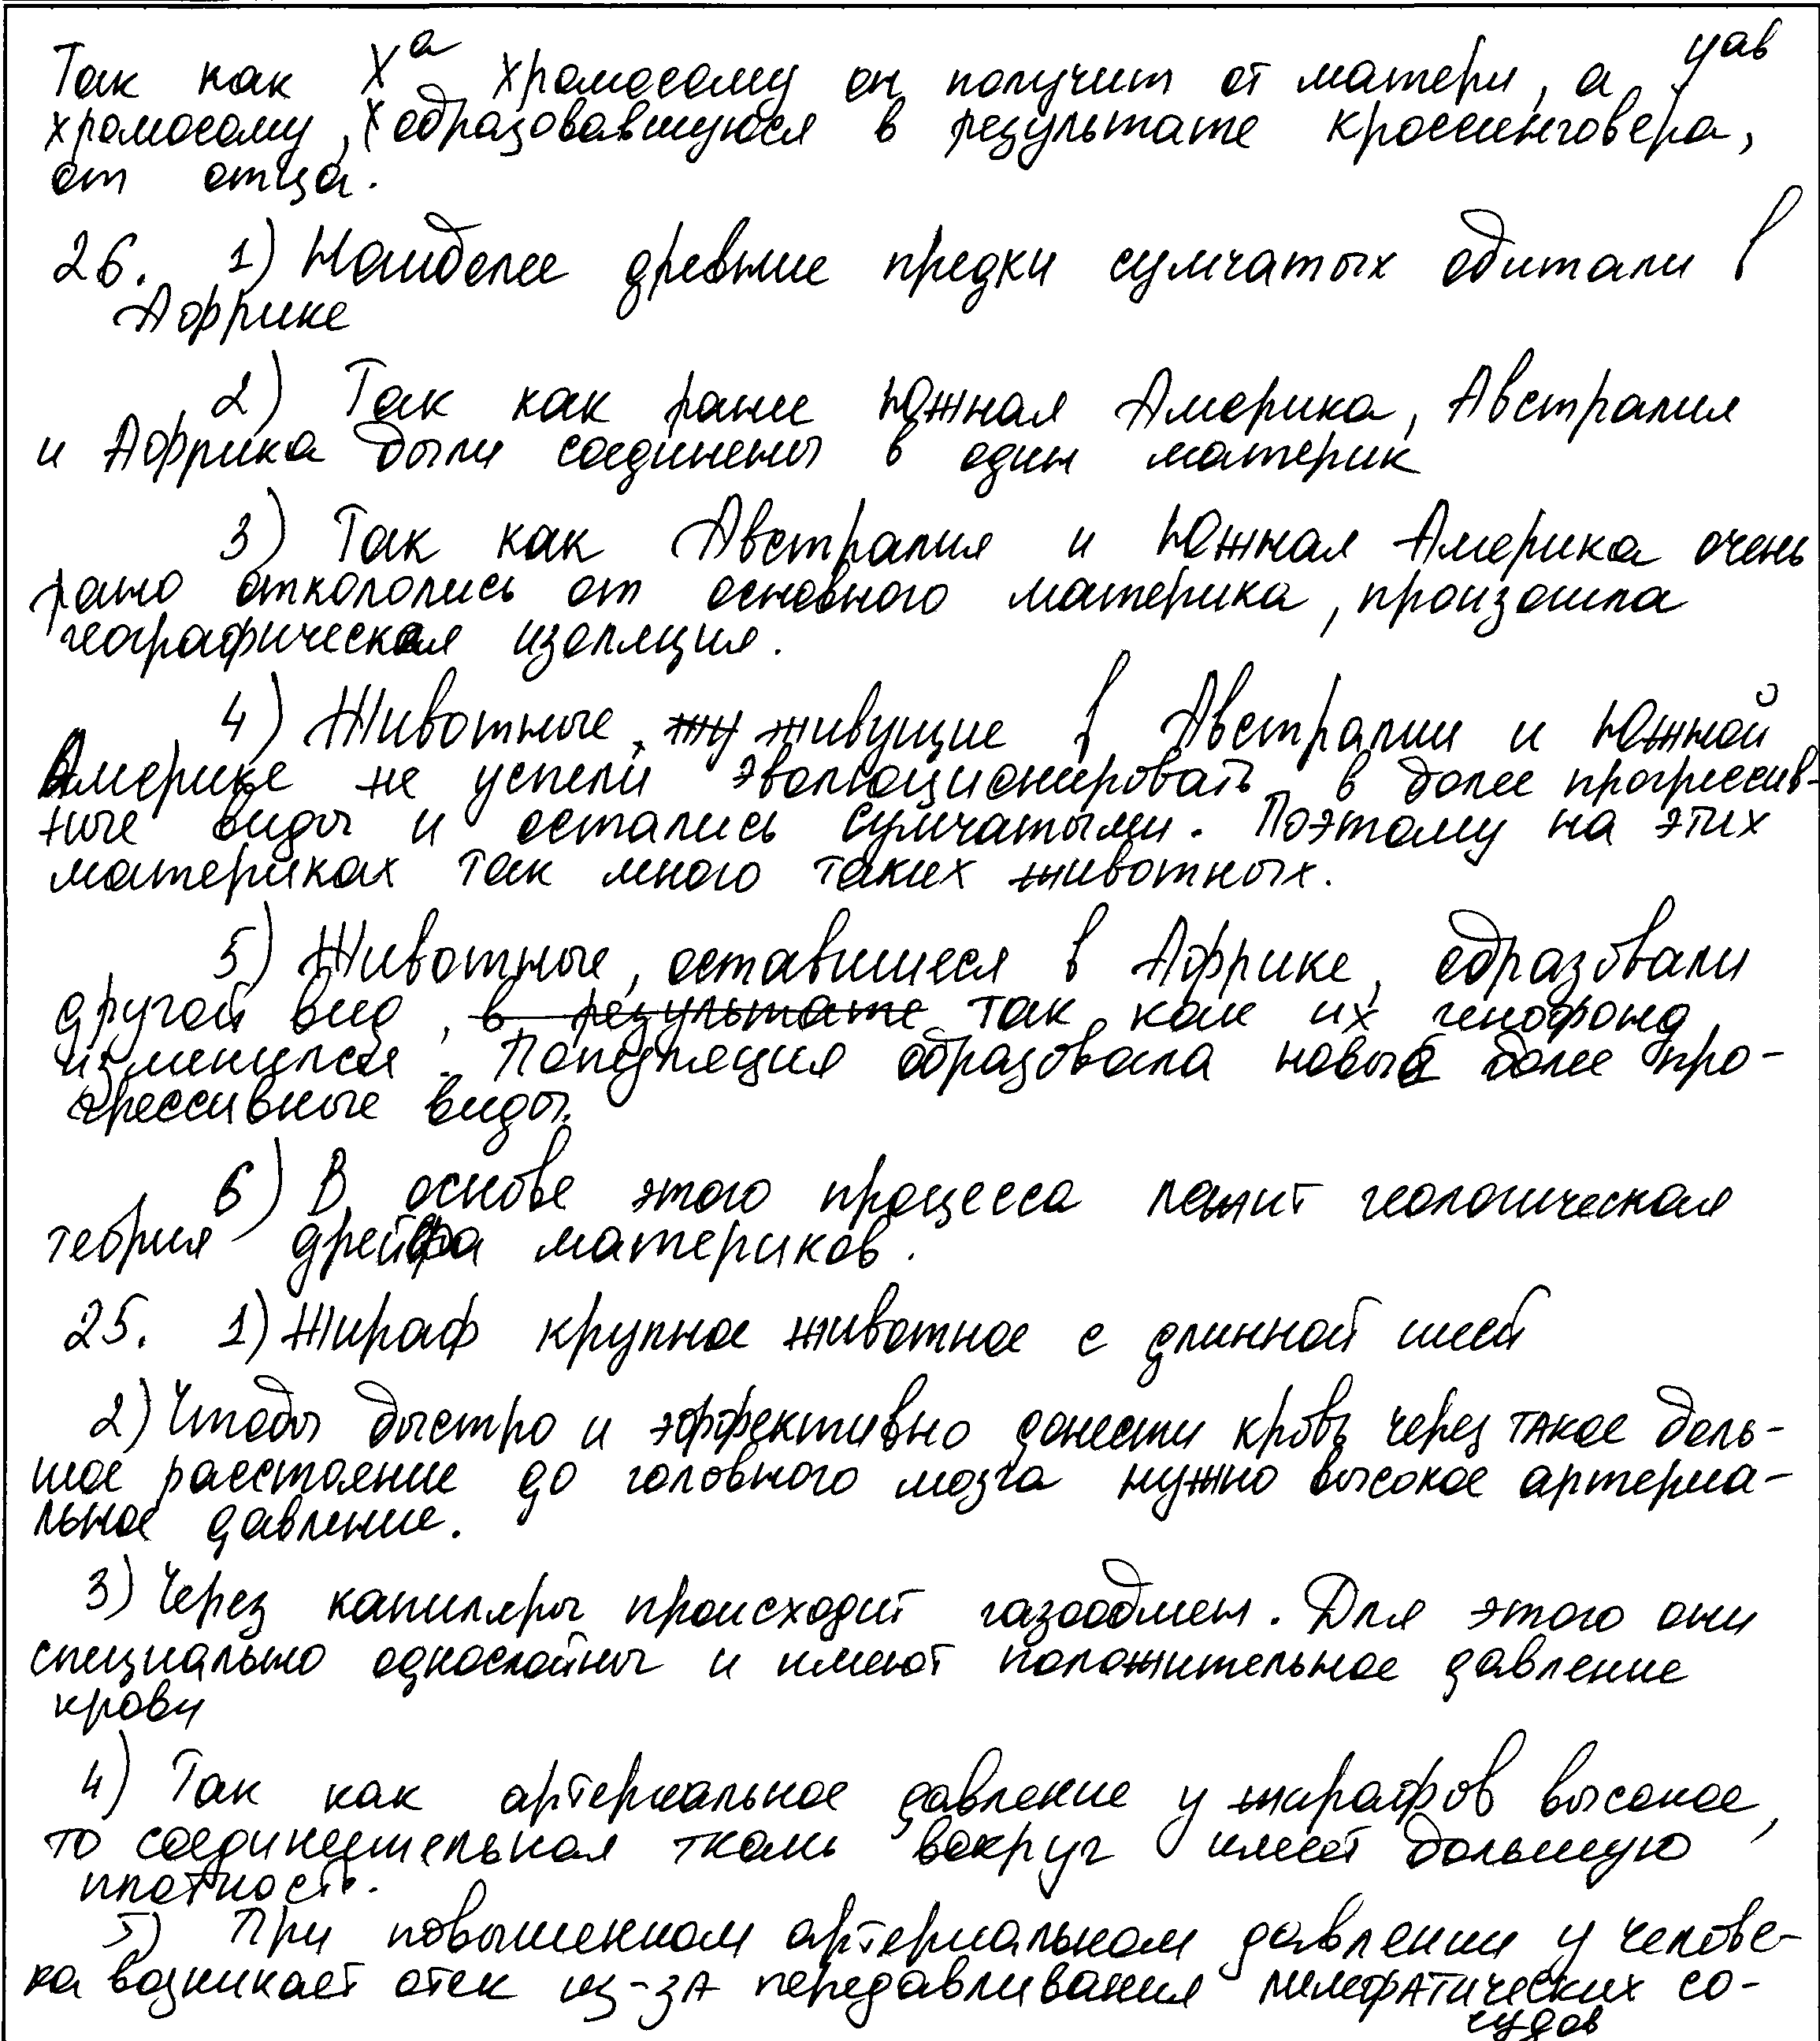 Так как Xᵃ хромосому он получит от матери, а Yᵃᵇ
хромосому, образовавшуюся в результате кроссинговера,
от отца.
26. 1) Наиболее древние предки сумчатых обитали в
Африке
2) Так как ранее Южная Америка, Австралия
и Африка были соединены в один материк
3) Так как Австралия и Южная Америка очень
рано откололись от основного материка, произошла
географическая изоляция.
4) Животные, живущие в Австралии и Южной
Америке не успели эволюционировать в более прогрессив-
ные виды и остались сумчатыми. Поэтому на этих
материках так много таких животных.
5) Животные, оставшиеся в Африке, образовали
другой вид, в результате так как их генофонд
изменился. Популяция образовала новые более про-
грессивные виды.
6) В основе этого процесса лежит геологическая
теория дрейфа материков.
25. 1) Жираф крупное животное с длинной шеей
2) Чтобы быстро и эффективно донести кровь через такое боль-
шое расстояние до головного мозга нужно высокое артериа-
льное давление.
3) Через капилляры происходит газообмен. Для этого они
специально однослойны и имеют положительное давление
крови
4) Так как артериальное давление у жирафов высокое,
то соединительная ткань вокруг имеет большую
плотность.
5) При повышенном артериальном давлении у челове-
ка возникает отек из-за передавливания лимфатических со-
судов